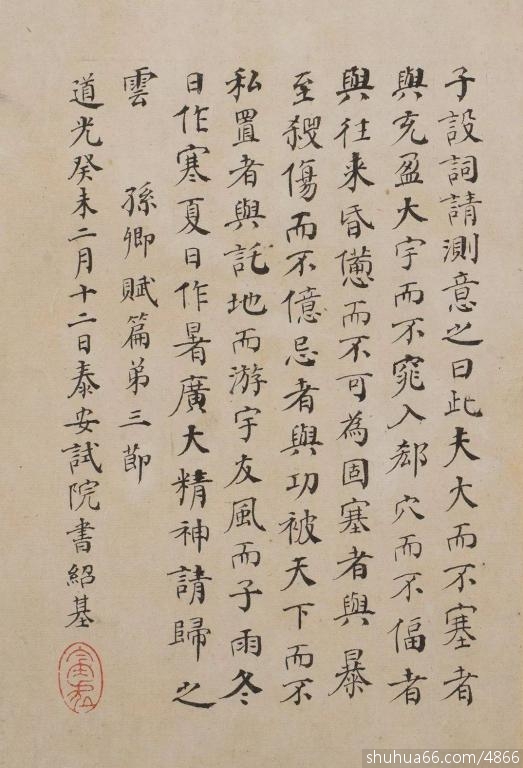 子設詞請測意之曰此夫大而不塞者
與充盈大宇而不窕入郄穴而不偪者
與往来昏憊而不可為固塞者與暴
至殺傷而不億忌者與功被天下而不
私置者與託地而游宇友風而子雨冬
日作寒夏日作暑廣大精神請歸之
雲
孫卿賦篇第三節
道光癸未二月十二日泰安試院書紹基
shuhua66.com/4866